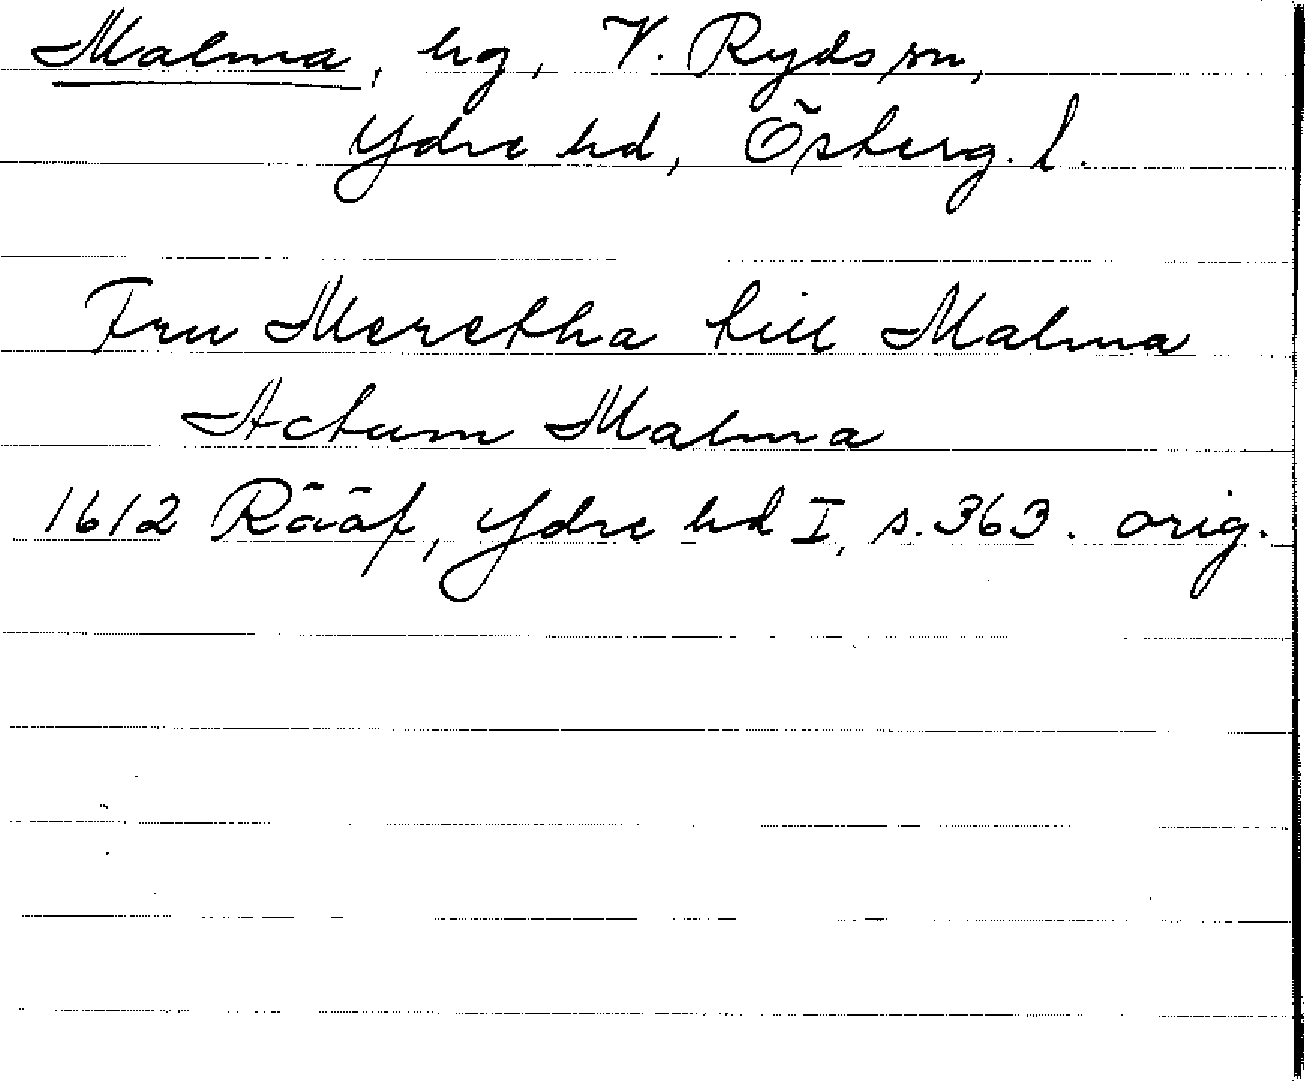 Malma, hg, V. Ryds sn,
Ydre hd, Österg. l.
Fru Meretha till Malma
Actum Malma
1612 Rääf, Ydre hd I, s. 363. orig.